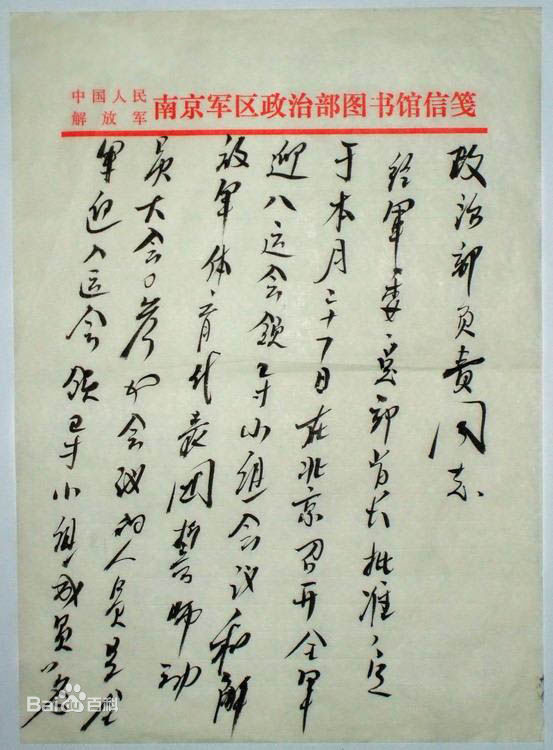 中国人民
解放军
南京军区政治部图书馆信笺
政治部负责同志
经军委、总部首长批准，定
于本月二十日在北京召开全军
迎八运会领导小组会议和解
放军体育代表团誓师动
员大会。参加会议的人员是全
军迎八运会领导小组成员、各
Baidu百科